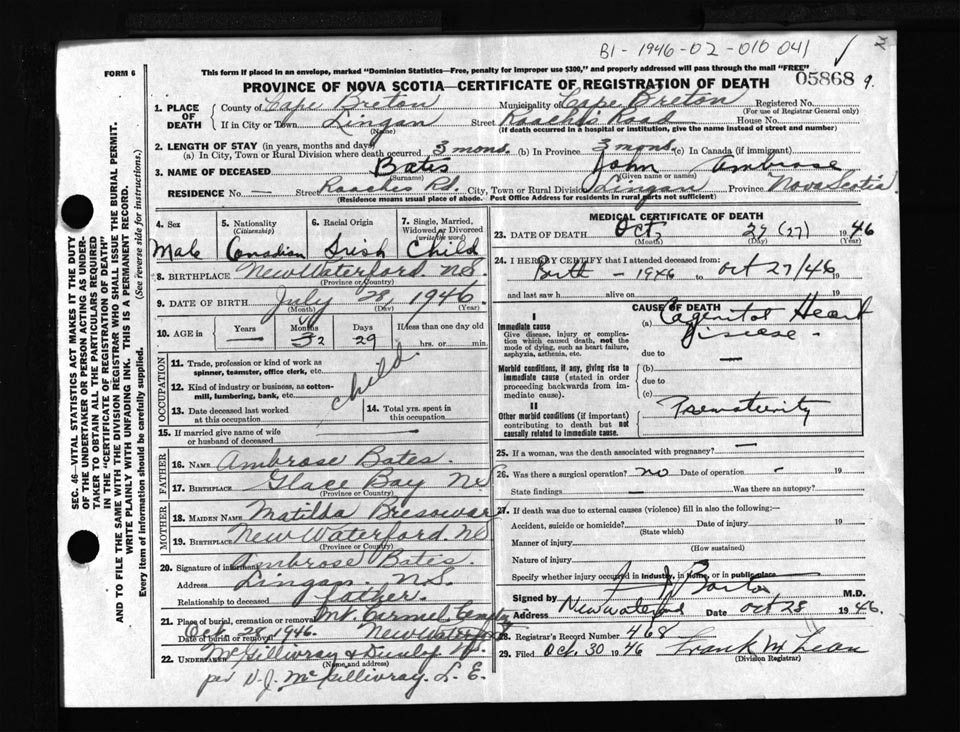 B1-1946-02-010 041
FORM 6
This form if placed in an envelope, marked "Dominion Statistics—Free, penalty for improper use $300," and properly addressed will pass through the mail "FREE"
05868 9.
PROVINCE OF NOVA SCOTIA—CERTIFICATE OF REGISTRATION OF DEATH
1. PLACE OF DEATH
County of Cape Breton Municipality of Cape Breton Registered No.
(For use of Registrar General only)
If in City or Town Lingan Street Roaches Road House No.
(Name) (If death occurred in a hospital or institution, give the name instead of street and number)
2. LENGTH OF STAY (in years, months and days)
(a) In City, Town or Rural Division where death occurred 3 mons. (b) In Province 3 mons. (c) In Canada (if immigrant)
3. NAME OF DECEASED Bates John Ambrose
(Surname) (Given name or names)
RESIDENCE No. — Street Roaches Rd. City, Town or Rural Division Lingan Province Nova Scotia
(Residence means usual place of abode. Post Office Address for residents in rural parts not sufficient)
SEC. 46—VITAL STATISTICS ACT MAKES IT THE DUTY
OF THE UNDERTAKER OR PERSON ACTING AS UNDER-
TAKER TO OBTAIN ALL THE PARTICULARS REQUIRED
IN THE "CERTIFICATE OF REGISTRATION OF DEATH"
AND TO FILE THE SAME WITH THE DIVISION REGISTRAR WHO SHALL ISSUE THE BURIAL PERMIT.
WRITE PLAINLY WITH UNFADING INK. THIS IS A PERMANENT RECORD.
Every item of information should be carefully supplied. (See reverse side for instructions.)
4. Sex
Male
5. Nationality
(Citizenship)
Canadian
6. Racial Origin
Irish
7. Single, Married,
Widowed or Divorced
(write the word)
Child
8. BIRTHPLACE New Waterford N.S.
(Province or Country)
9. DATE OF BIRTH July 28, 1946.
(Month) (Day) (Year)
10. AGE in
Years Months Days If less than one day old
— 2 29 hrs. or min.
OCCUPATION
11. Trade, profession or kind of work as
spinner, teamster, office clerk, etc.
12. Kind of industry or business, as cotton-
mill, lumbering, bank, etc.
child.
13. Date deceased last worked
at this occupation
14. Total yrs. spent in
this occupation
15. If married give name of wife
or husband of deceased
FATHER
16. NAME Ambrose Bates.
17. BIRTHPLACE Glace Bay NS
(Province or Country)
MOTHER
18. MAIDEN NAME Matilda
19. BIRTHPLACE New Waterford. NS
(Province or Country)
20. Signature of informant Ambrose Bates.
Address Lingan. N.S.
Relationship to deceased father.
21. Place of burial, cremation or removal Mt. Carmel Cemetry
Date of burial or removal Oct. 28, 1946. New Waterford
22. UNDERTAKER McGillivray & Dunlop
(Name and address)
per D.J. McGillivray. L.E.
MEDICAL CERTIFICATE OF DEATH
23. DATE OF DEATH Oct 27 (27) 1946
(Month) (Day) (Year)
24. I HEREBY CERTIFY that I attended deceased from:
Birth - 1946 to Oct 27/46 19
and last saw h alive on 19
CAUSE OF DEATH
I
Immediate cause
Give disease, injury or complica-
tion which caused death, not the
mode of dying, such as heart failure,
asphyxia, asthenia, etc.
(a) Cogenital Heart
Disease.
due to —
Morbid conditions, if any, giving rise to
immediate cause (stated in order
proceeding backwards from im-
mediate cause).
(b)
due to
(c)
II
Other morbid conditions (if important)
contributing to death but not
causally related to immediate cause.
Prematurity
25. If a woman, was the death associated with pregnancy? —
26. Was there a surgical operation? no Date of operation - 19
State findings — Was there an autopsy?
27. If death was due to external causes (violence) fill in also the following:—
Accident, suicide or homicide? Date of injury 19
(State which)
Manner of injury
(How sustained)
Nature of injury
Specify whether injury occurred in industry, in home, or in public place
Signed by M.D.
Address New Waterford Date Oct 28 1946.
28. Registrar's Record Number 468
29. Filed Oct. 30 1946 Frank McLean
(Division Registrar)